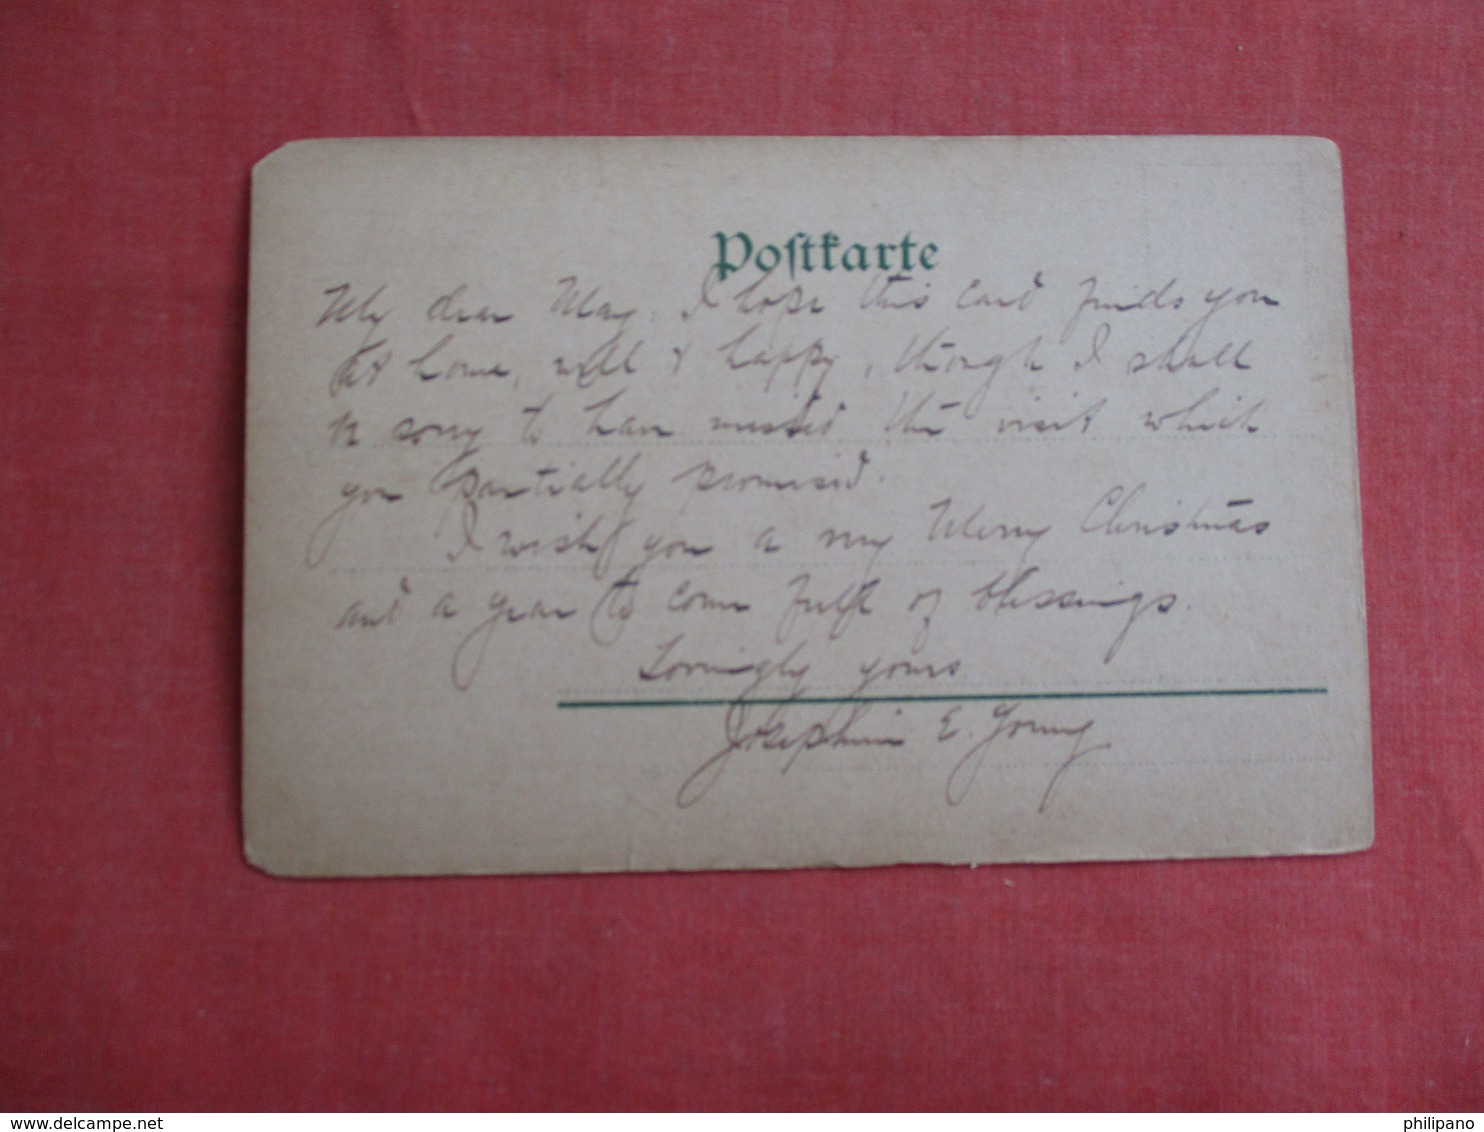 Poſtkarte
My dear May. I hope this card finds you
at home, well & happy, though I shall
be sorry to have missed the visit which
you partially promised.
I wish you a very Merry Christmas
and a year to come full of blessings.
Lovingly yours
Josephine E. Young
www.delcampe.net
philipano